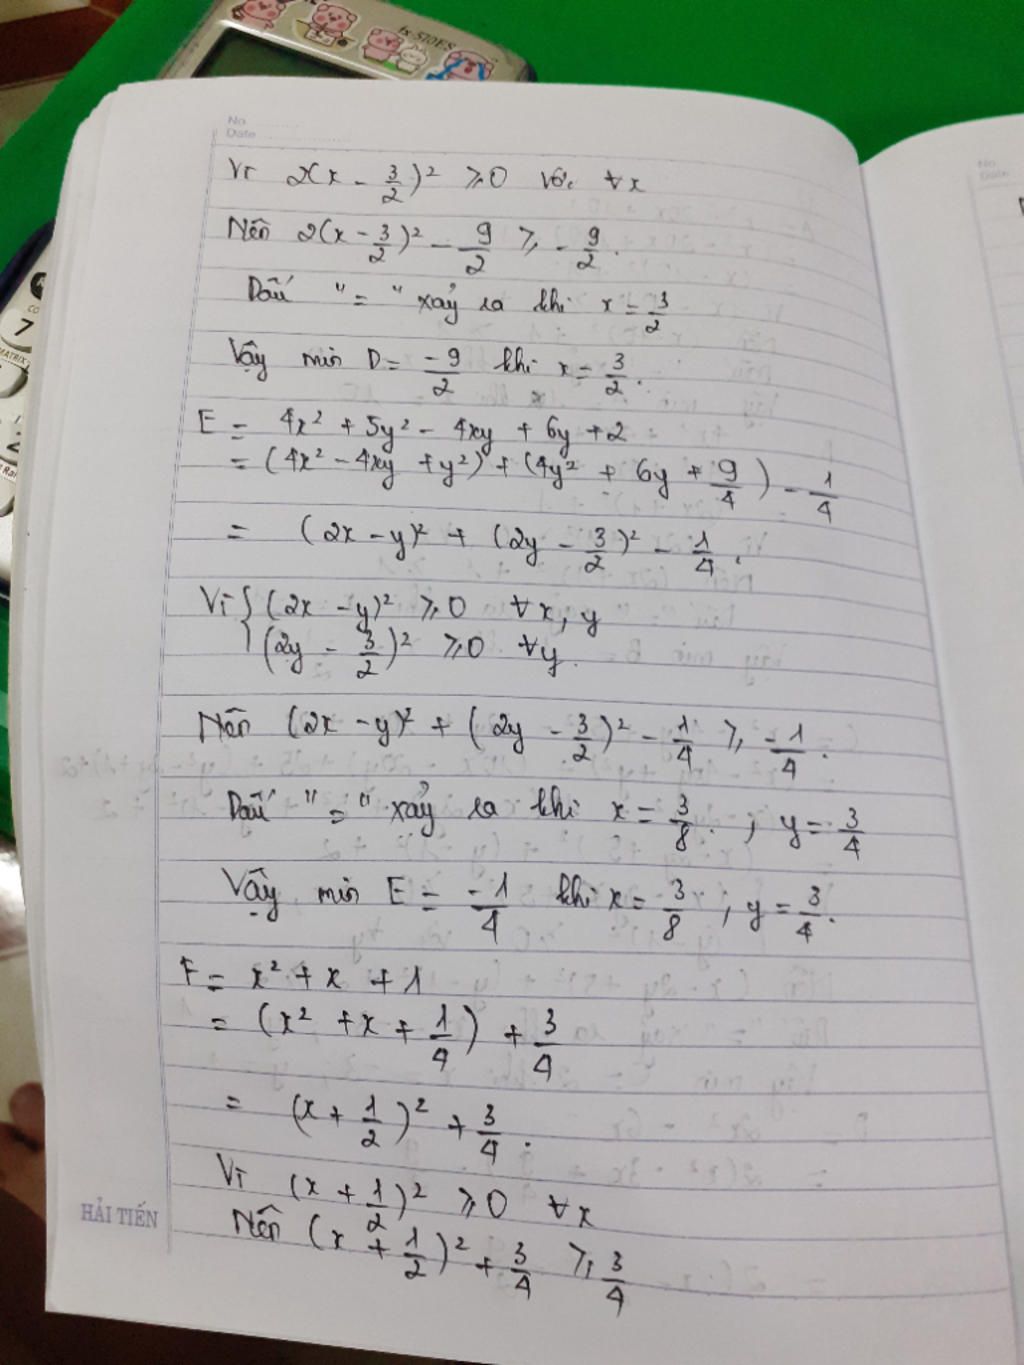 fx-570ES
No
Date
Vì 2(x - 3/2)² ≥ 0 với ∀x
Nên 2(x - 3/2)² - 9/2 ≥ - 9/2.
Dấu "=" xảy ra khi x = 3/2
Vậy min D = -9/2 khi x = 3/2.
E = 4x² + 5y² - 4xy + 6y + 2
= (4x² - 4xy + y²) + (4y² + 6y + 9/4) - 1/4
= (2x - y)² + (2y - 3/2)² - 1/4.
Vì { (2x - y)² ≥ 0 ∀x, y
(2y - 3/2)² ≥ 0 ∀y.
Nên (2x - y)² + (2y - 3/2)² - 1/4 ≥ -1/4.
Dấu "=" xảy ra khi x = 3/8. ; y = 3/4
Vậy min E = -1/4 khi x = 3/8 ; y = 3/4.
F = x² + x + 1
= (x² + x + 1/4) + 3/4
= (x + 1/2)² + 3/4.
Vì (x + 1/2)² ≥ 0 ∀x
HẢI TIẾN
Nên (x + 1/2)² + 3/4 ≥ 3/4
No
Date
7
MATRIX
2